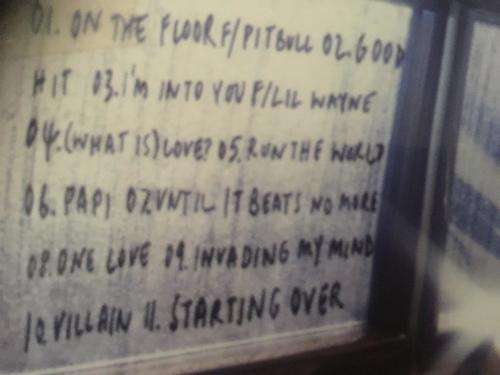 01. ON THE FLOOR F/PITBULL 02. GOOD
HIT 03. I'M INTO YOU F/LIL WAYNE
04. (WHAT IS) LOVE? 05. RUN THE WORLD
06. PAPI 07. UNTIL IT BEATS NO MORE
08. ONE LOVE 09. INVADING MY MIND
10. VILLAIN 11. STARTING OVER